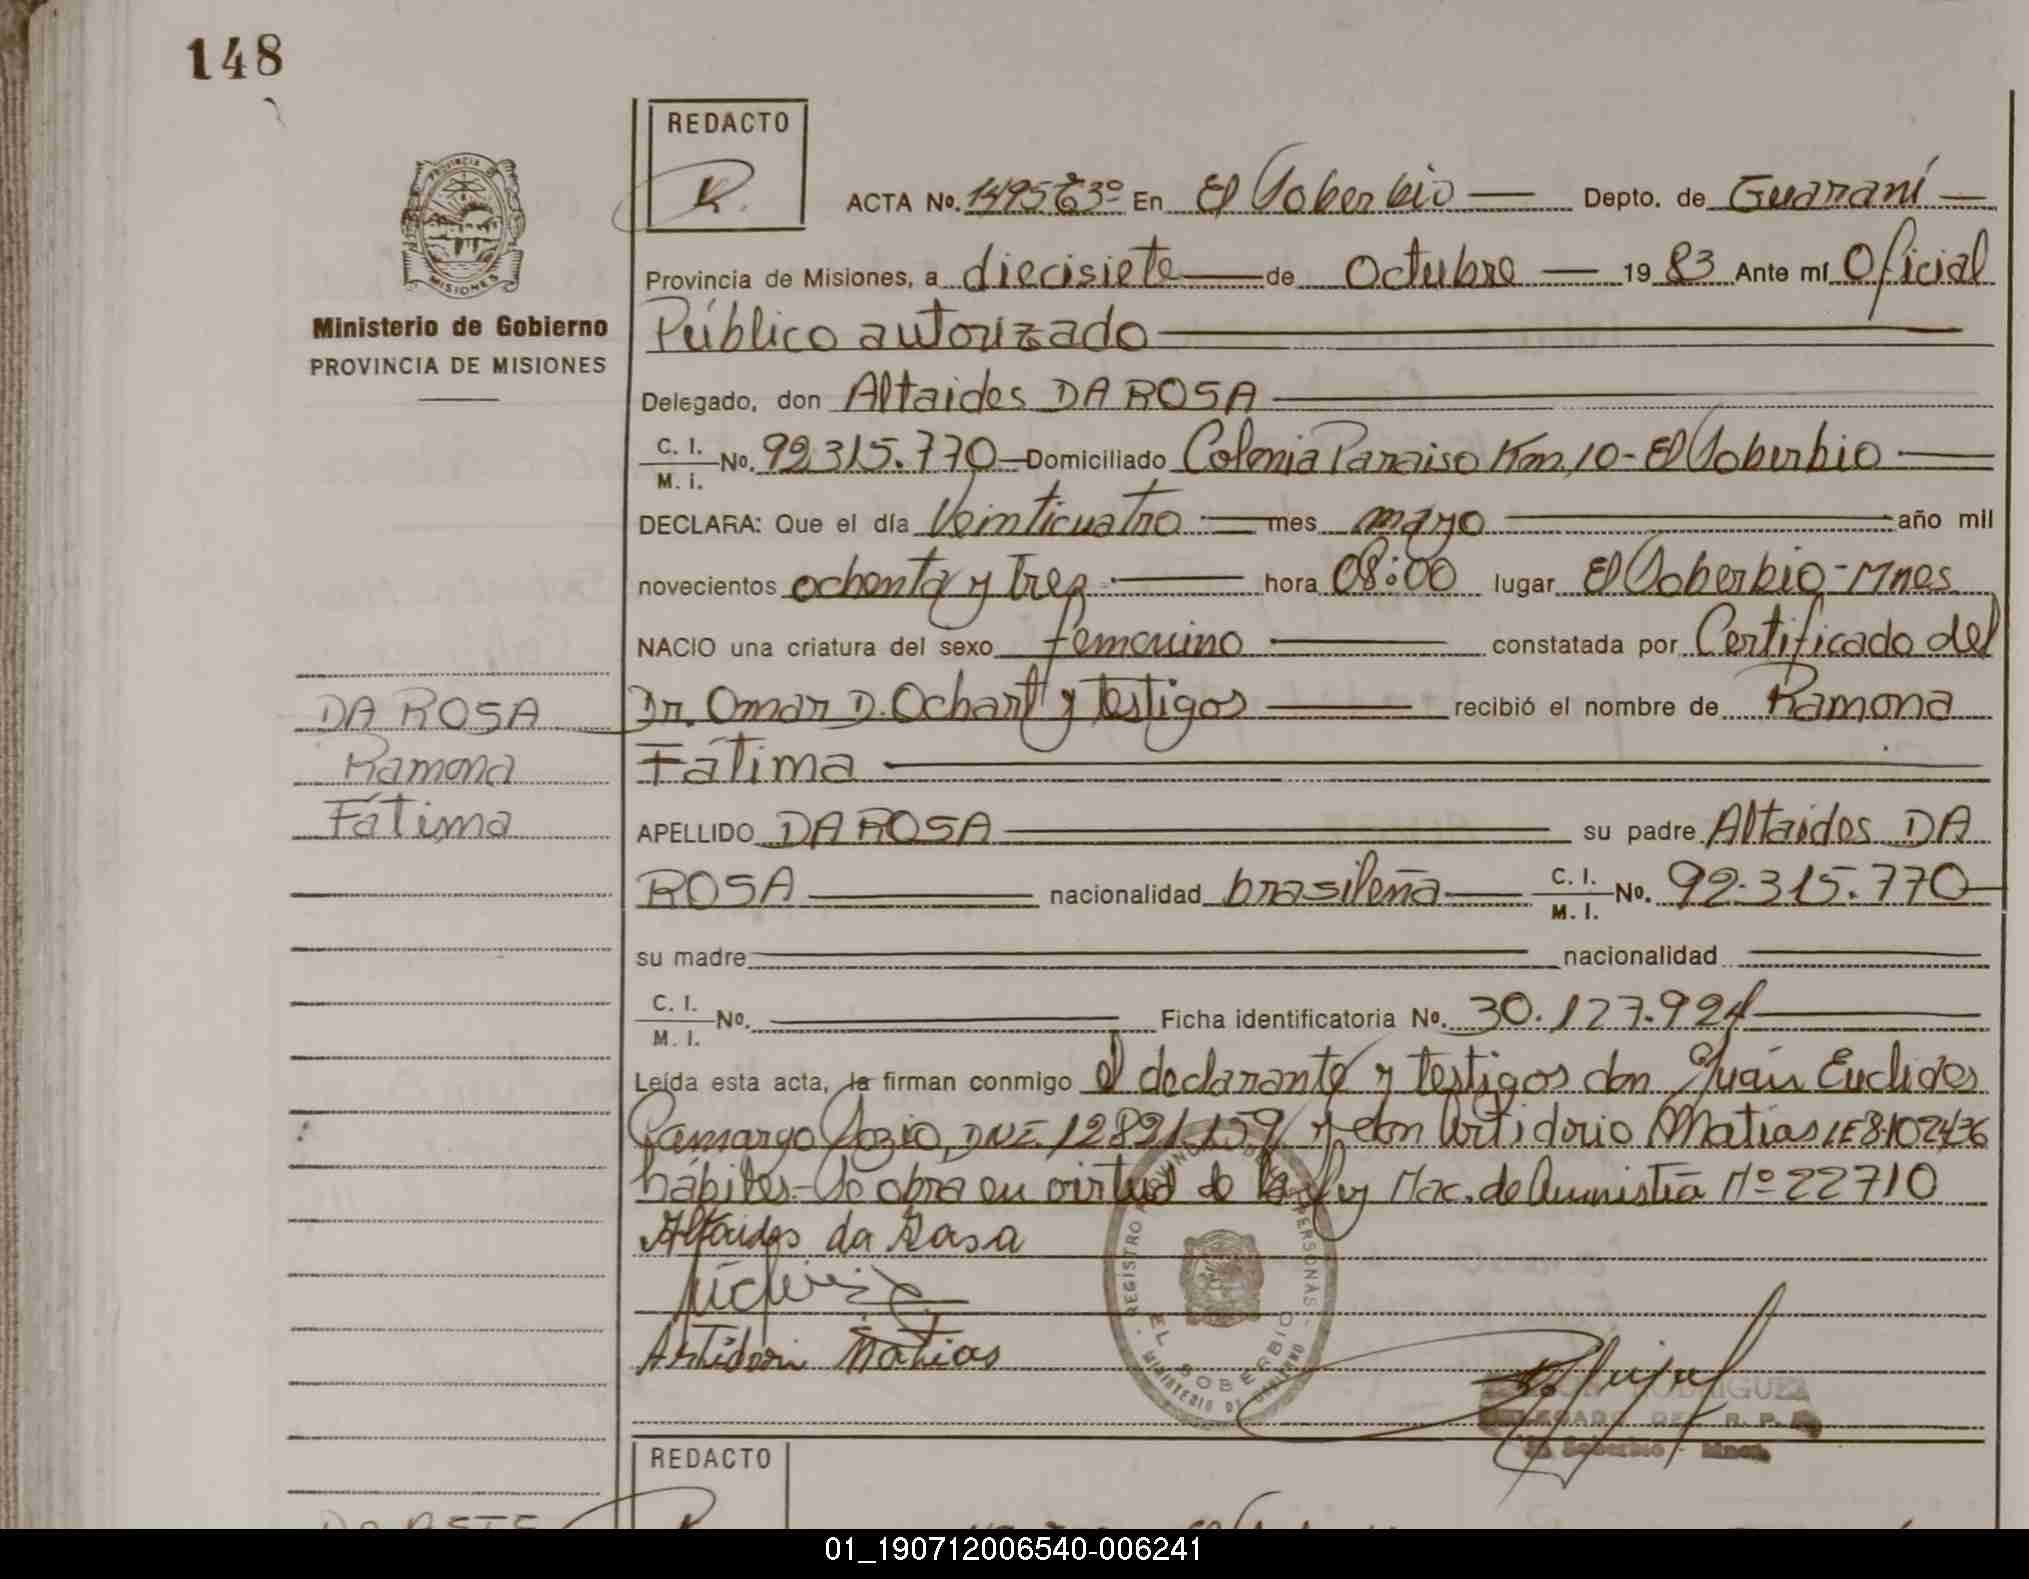 148
REDACTO
R.
ACTA No. 1495 T 3º En El Soberbio Depto. de Guaraní
Provincia de Misiones, a diecisiete de Octubre 19 83 Ante mí Oficial
Ministerio de Gobierno
PROVINCIA DE MISIONES
Público autorizado
Delegado, don Altaides DA ROSA
C. I. M. i. No. 92.315.770 Domiciliado Colonia Paraiso Km, 10 - El Soberbio
DECLARA: Que el día Veinticuatro mes mayo año mil
novecientos ochenta y tres hora 08:00 lugar El Soberbio - Mnes
NACIO una criatura del sexo femenino constatada por Certificado del
Dr. Omar D. Ochart y testigos recibió el nombre de Ramona
Fátima
DA ROSA
Ramona
Fátima
APELLIDO DA ROSA su padre Altaides DA
ROSA nacionalidad brasileña C. I. M. I. No. 92.315.770
su madre nacionalidad
C. I. M. I. No. Ficha identificatoria No. 30.127.924
Leída esta acta, la firman conmigo el declarante y testigos don Juan Euclides
Camargo Sozio, DNI. 12891.159 y don Artidorio Matias LE 8.102436
hábiles - Se obra en virtud de la Ley Nac. de Amnistía Nº 22710
Altaides da Rosa
Artidori Matias
REGISTRO PROVINCIAL DE LAS PERSONAS
EL SOBERBIO
MINISTERIO DE GOBIERNO
RODRIGUEZ
DELEGADO DEL R. P. P.
El Soberbio - Mnes.
REDACTO
01_190712006540-006241